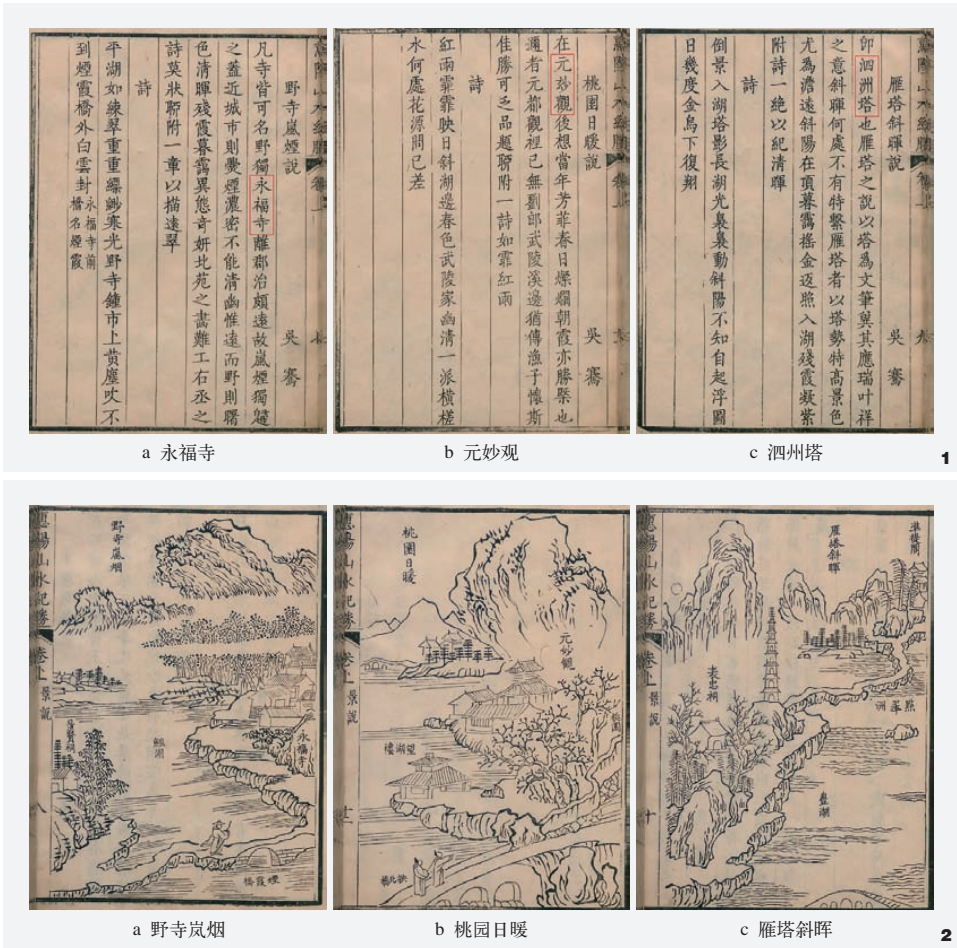 野寺嵐煙說 吳騫
凡寺皆可名野獨永福寺離郡治頗遠故嵐煙獨饒
之蓋近城市則爨煙濃密不能清幽惟遠而野則曙
色清暉殘霞暮靄異態奇妍北苑之畵難工右丞之
詩莫狀聊附一章以描遠翠
詩
平湖如練翠重重縹緲寒光野寺鍾市上黃塵吹不
到煙霞橋外白雲封 永福寺前
橋名煙霞
a 永福寺
桃園日暖說 吳騫
在元妙觀後想當年芳菲春日爍爛朝霞亦勝槩也
邇者元都觀裡已無劉郎武陵溪邊猶傳漁子懷斯
佳勝可乏品題聊附一詩如霏紅雨
詩
紅雨霏霏映日斜湖邊春色武陵家幽清一派橫槎
水何處花源問已差
b 元妙观
雁塔斜暉說 吳騫
卽泗洲塔也雁塔之說以塔為文筆冀其應瑞叶祥
之意斜暉何處不有特繫雁塔者以塔勢特高景色
尤為澹遠斜陽在頂暮靄搖金返照入湖殘霞凝紫
附詩一絶以紀清暉
詩
倒景入湖塔影長湖光裊裊動斜陽不知自起浮圖
日幾度金烏下復翔
c 泗州塔
1
惠陽山水紀勝 卷上 景說 八
野寺嵐烟
永福寺
鱷湖
煙霞橋
a 野寺岚烟
惠陽山水紀勝 卷上 景說
桃園日暖
元妙觀
桃園
望湖樓
拱北橋
b 桃园日暖
惠陽山水紀勝 卷上 景說 十
雁塔斜暉
表忠祠
點翠洲
c 雁塔斜晖
2